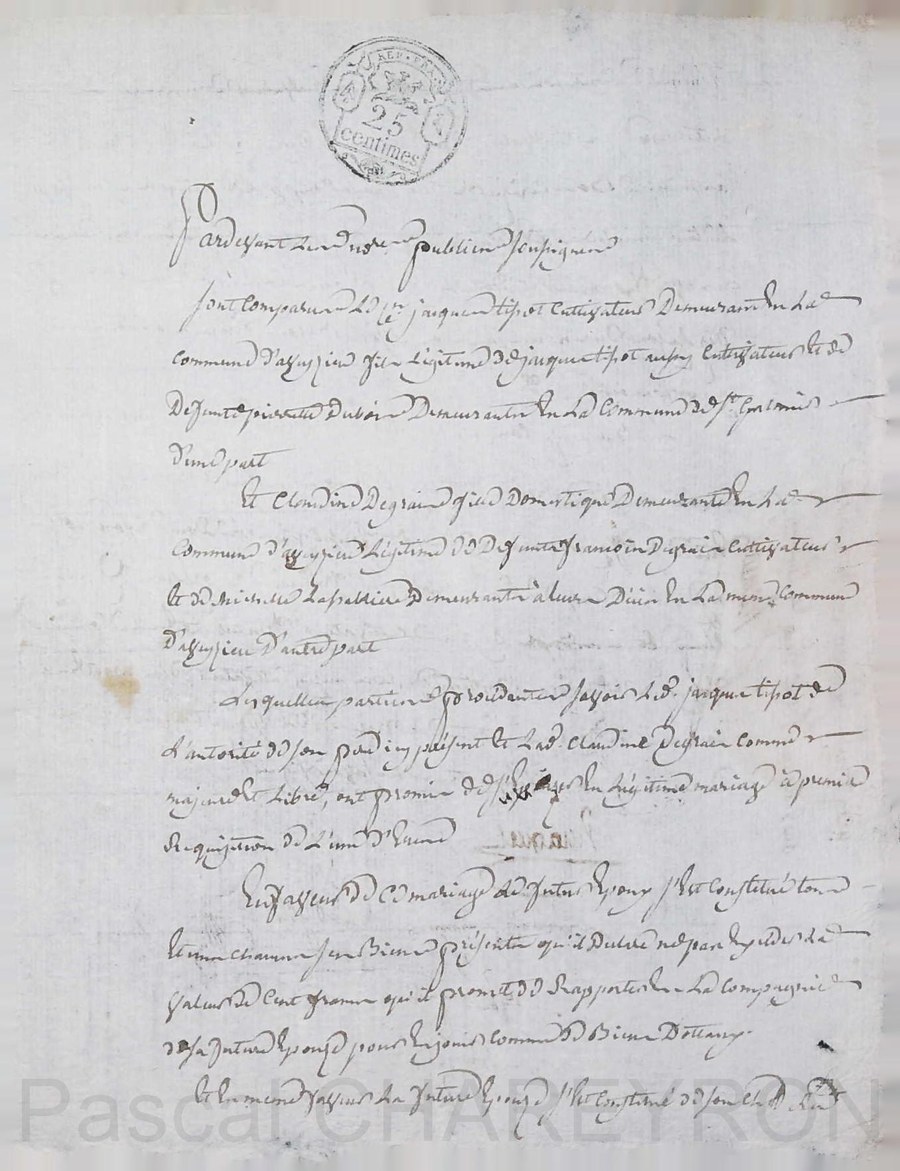 REP. FRA.
25
centimes
Pardevant Les No.res publics soussignés
sont comparus Le Cen jacques tissot Cultivateur Demeurant En La
commune d'aveyzieu fils Légitime de jacques tissot aussy Cultivateur Et de
Defunte pierrette Dubois Demeurants En La Commune de St. Galmier
d'une part
Et Claudine Degrain fille Domestique Demeurante En La
commune d'aveyzieu Légitime de Defunt françois Degrain Cultivateur
Et de Demeurante En La meme Commune
D'aveyzieu D'autre part
Lesquelles parties procedantes savoir Led. jacques tissot de
L'autorité de son pere icy présent Et Lad. Claudine Degrain comme
majeure Et Libre, ont promis de En Légitime mariage à premiere
Requisition de L'une D'Elles
En faveur de Ce mariage Le futur Epoux s'Est Constitué tous
Et un chacuns ses Biens présents qu'il Declare ne pas Exceder La
valeur de Cent francs qu'il promet de Rapporter En La Compagnie
de sa future Epouze pour En jouir Comme de Biens Dottaux.
Et En meme faveur La future Epouze s'Est Constitué de son Chef
Pascal CHAREYRON